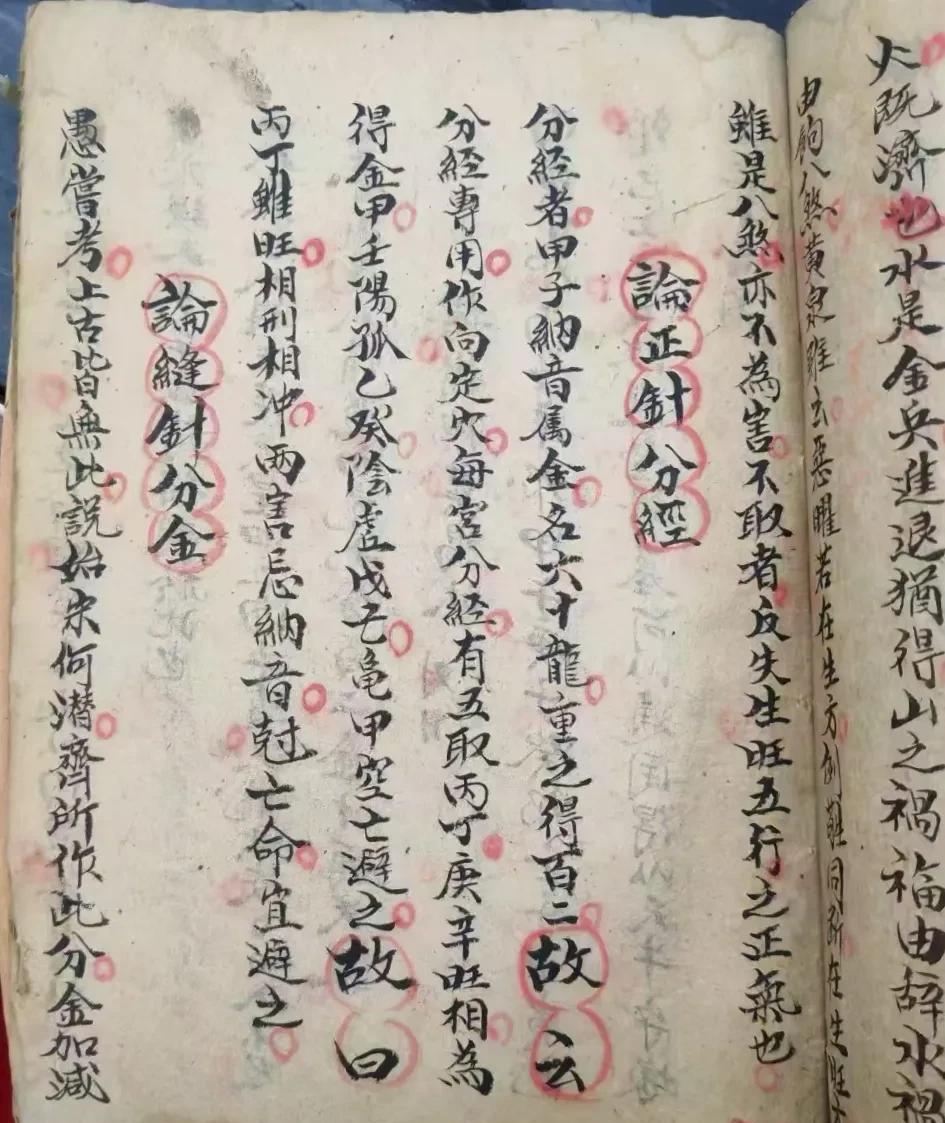 火既濟也水是金兵進退猶得山之禍福由辞水禍
由的八煞黃泉雖云惡曜若在生方例難同断在生旺
雖是八煞亦不為害不取者反失生旺五行之正氣也
論正針分經
分經者甲子納音属金名六十龍重之得百二故云
分經專用作向定穴每宮分經有五取丙丁庚辛旺相為
得金甲壬陽孤乙癸陰虛戊己亀甲空亡避之故曰
丙丁雖旺相刑相冲两害忌納音尅亡命宜避之
論縫針分金
愚嘗考上古皆無此説始宋何潜齊所作此分金加減